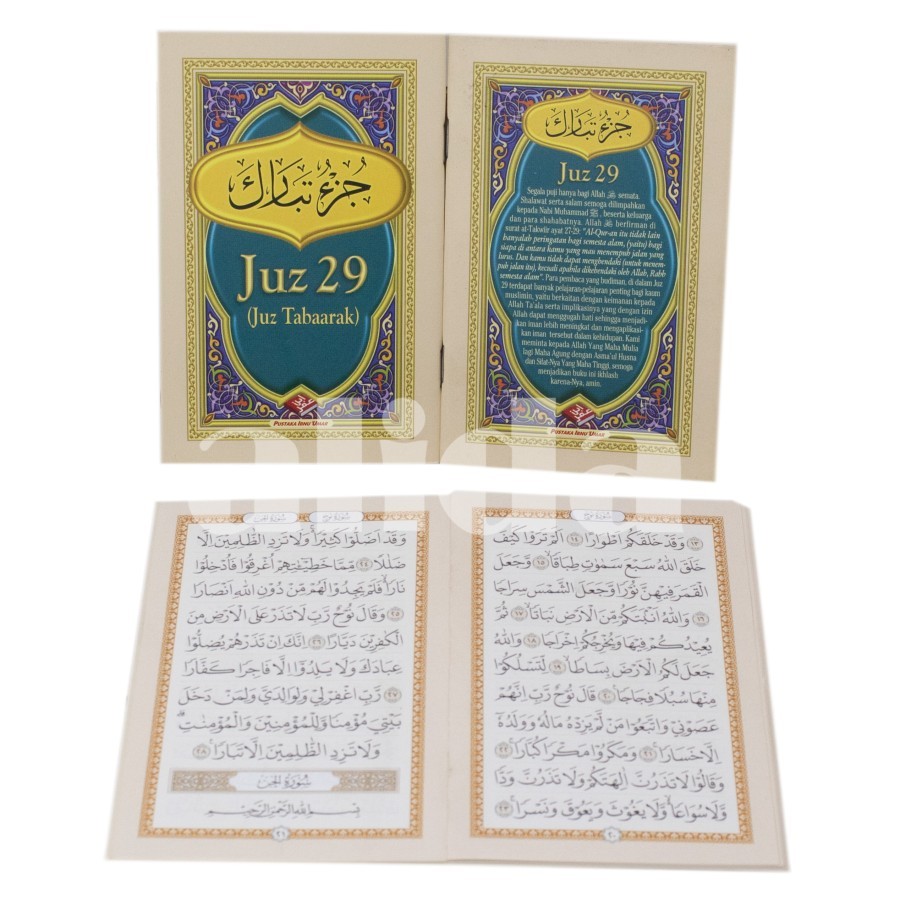 جزء تبارك
Juz 29
(Juz Tabaarak)
PUSTAKA IBNU 'UMAR
جزء تبارك
Juz 29
Segala puji hanya bagi Allah ﷻ semata.
Shalawat serta salam semoga dilimpahkan
kepada Nabi Muhammad ﷺ, beserta keluarga
dan para shahabatnya. Allah ﷻ berfirman di
surat at-Takwiir ayat 27-29: "Al-Qur-an itu tidak lain
hanyalah peringatan bagi semesta alam, (yaitu) bagi
siapa di antara kamu yang mau menempuh jalan yang
lurus. Dan kamu tidak dapat menghendaki (untuk menem-
puh jalan itu), kecuali apabila dikehendaki oleh Allah, Rabb
semesta alam". Para pembaca yang budiman, di dalam Juz
29 terdapat banyak pelajaran-pelajaran penting bagi kaum
muslimin, yaitu berkaitan dengan keimanan kepada
Allah Ta'ala serta implikasinya yang dengan izin
Allah dapat menggugah hati sehingga menjadi-
kan iman lebih meningkat dan mengaplikasi-
kan iman tersebut dalam kehidupan. Kami
meminta kepada Allah Yang Maha Mulia
lagi Maha Agung dengan Asma'ul Husna
dan Sifat-Nya Yang Maha Tinggi, semoga
menjadikan buku ini ikhlash
karena-Nya, amin.
PUSTAKA IBNU 'UMAR
alida
سورة نوح
١٣ وَقَدْ خَلَقَكُمْ اَطْوَارًا ١٤ اَلَمْ تَرَوْا كَيْفَ
خَلَقَ اللّٰهُ سَبْعَ سَمٰوٰتٍ طِبَاقًا ١٥ وَّجَعَلَ
الْقَمَرَ فِيْهِنَّ نُوْرًا وَّجَعَلَ الشَّمْسَ سِرَاجًا
١٦ وَاللّٰهُ اَنْۢبَتَكُمْ مِّنَ الْاَرْضِ نَبَاتًا ١٧ ثُمَّ
يُعِيْدُكُمْ فِيْهَا وَيُخْرِجُكُمْ اِخْرَاجًا ١٨ وَاللّٰهُ
جَعَلَ لَكُمُ الْاَرْضَ بِسَاطًا ١٩ لِّتَسْلُكُوْا
مِنْهَا سُبُلًا فِجَاجًا ٢٠ قَالَ نُوْحٌ رَّبِّ اِنَّهُمْ
عَصَوْنِيْ وَاتَّبَعُوْا مَنْ لَّمْ يَزِدْهُ مَالُهٗ وَوَلَدُهٗٓ
اِلَّا خَسَارًا ٢١ وَمَكَرُوْا مَكْرًا كُبَّارًا ٢٢
وَقَالُوْا لَا تَذَرُنَّ اٰلِهَتَكُمْ وَلَا تَذَرُنَّ وَدًّا
وَّلَا سُوَاعًا وَّلَا يَغُوْثَ وَيَعُوْقَ وَنَسْرًا ٢٣
٢٠
سورة نوح
سورة الجن
وَقَدْ اَضَلُّوْا كَثِيْرًا وَلَا تَزِدِ الظّٰلِمِيْنَ اِلَّا
ضَلٰلًا ٢٤ مِمَّا خَطِيْۤـٰٔتِهِمْ اُغْرِقُوْا فَاُدْخِلُوْا
نَارًا فَلَمْ يَجِدُوْا لَهُمْ مِّنْ دُوْنِ اللّٰهِ اَنْصَارًا
٢٥ وَقَالَ نُوْحٌ رَّبِّ لَا تَذَرْ عَلَى الْاَرْضِ مِنَ
الْكٰفِرِيْنَ دَيَّارًا ٢٦ اِنَّكَ اِنْ تَذَرْهُمْ يُضِلُّوْا
عِبَادَكَ وَلَا يَلِدُوْٓا اِلَّا فَاجِرًا كَفَّارًا
٢٧ رَبِّ اغْفِرْ لِيْ وَلِوَالِدَيَّ وَلِمَنْ دَخَلَ
بَيْتِيَ مُؤْمِنًا وَّلِلْمُؤْمِنِيْنَ وَالْمُؤْمِنٰتِ
وَلَا تَزِدِ الظّٰلِمِيْنَ اِلَّا تَبَارًا ٢٨
سورة الجن
بِسْمِ اللّٰهِ الرَّحْمٰنِ الرَّحِيْمِ
٢١